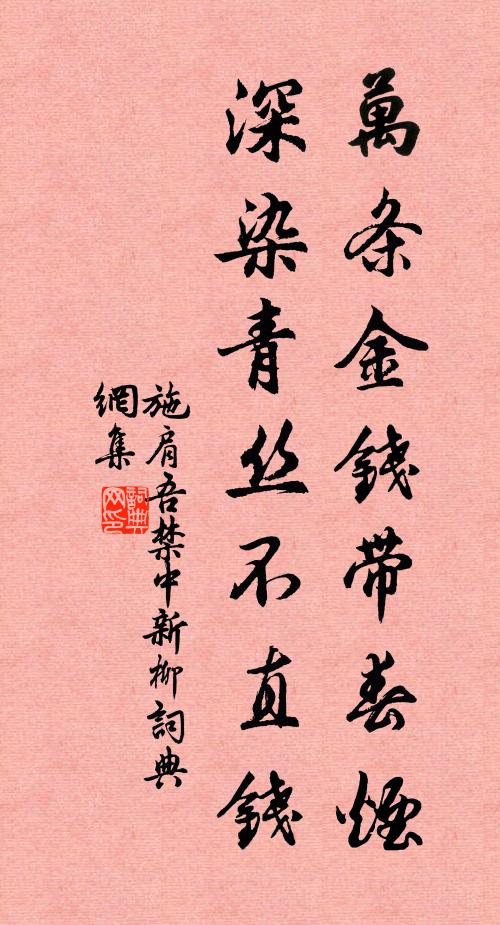 萬条金錢帶春煙
深染青丝不直錢
施肩吾禁中新柳詞典
網集
詞典
网印